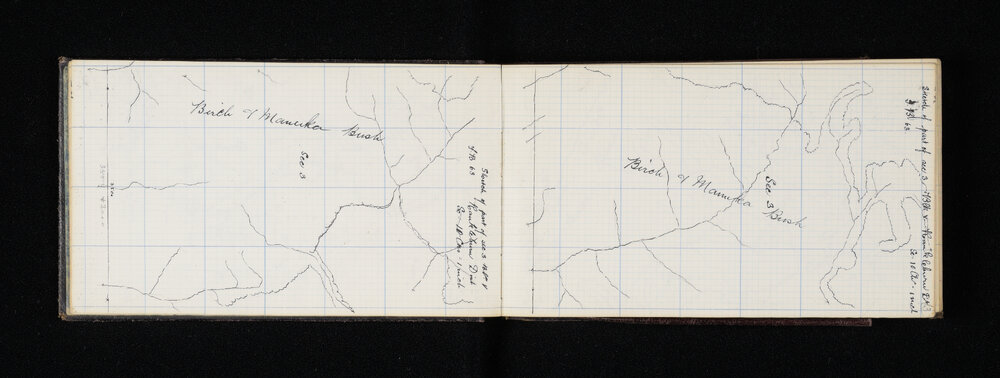 Birch & Manuka Bush
Sec 3
Sketch of part of sec 3 Blk V
Rankleburn Dist
Sc - 10 Chs - 1 inch
F B 63
Birch & Manuka Bush
Sec 3
Sketch of part of sec 3 Blk V Rankleburn Dist
Sc 10 Chs - 1 inch
F B 63